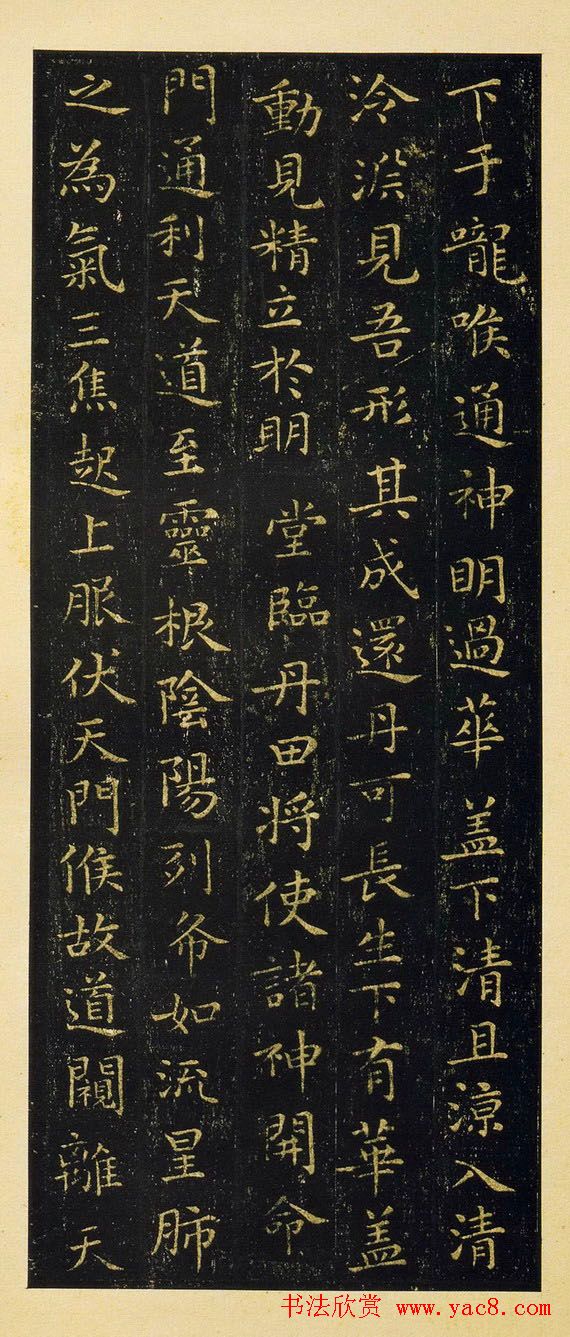 下于嚨喉通神明過華盖下清且涼入清
泠渊見吾形其成還丹可長生下有華盖
動見精立於明堂臨丹田将使諸神開命
門通利天道至靈根陰陽列布如流星肺
之為氣三焦起上服伏天門候故道闚離天
书法欣赏 www.yac8.com